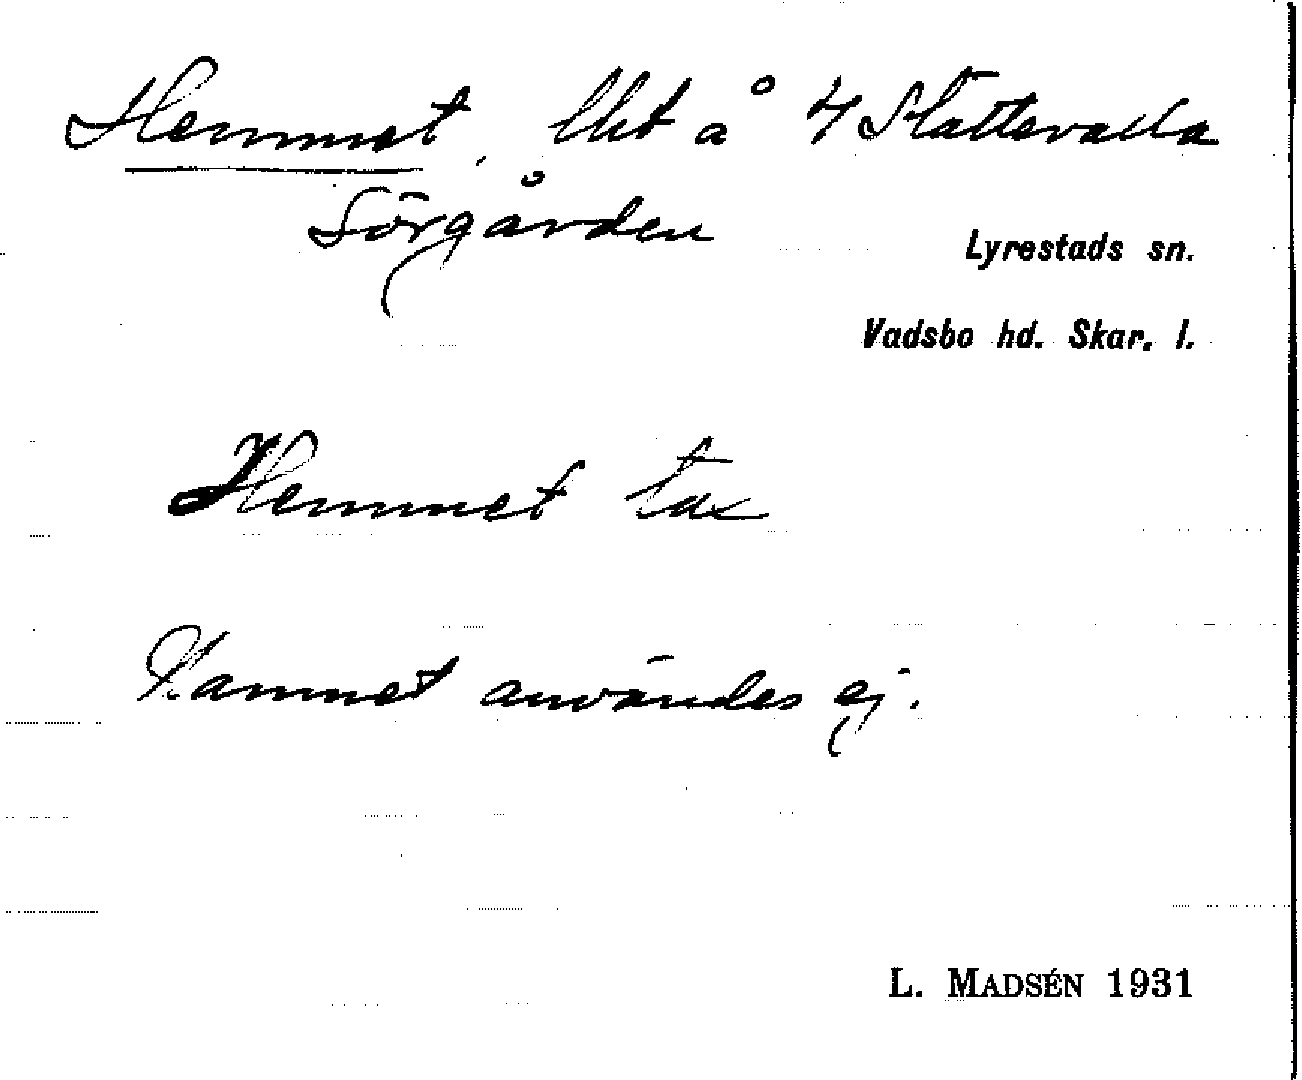 Hemmet, lht å 4 Slättevalla
Sörgården
Lyrestads sn.
Vadsbo hd. Skar. l.
Hemmet tax
Namnet användes ej.
L. MADSÉN 1931